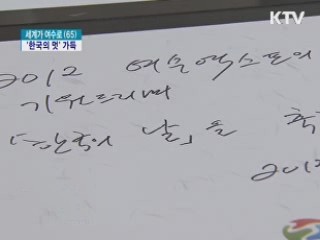 KTV
세계가 여수로 (65)
'한국의 멋' 가득
2012 여수엑스포의
기원드리며
「한국의 날」을 축
201